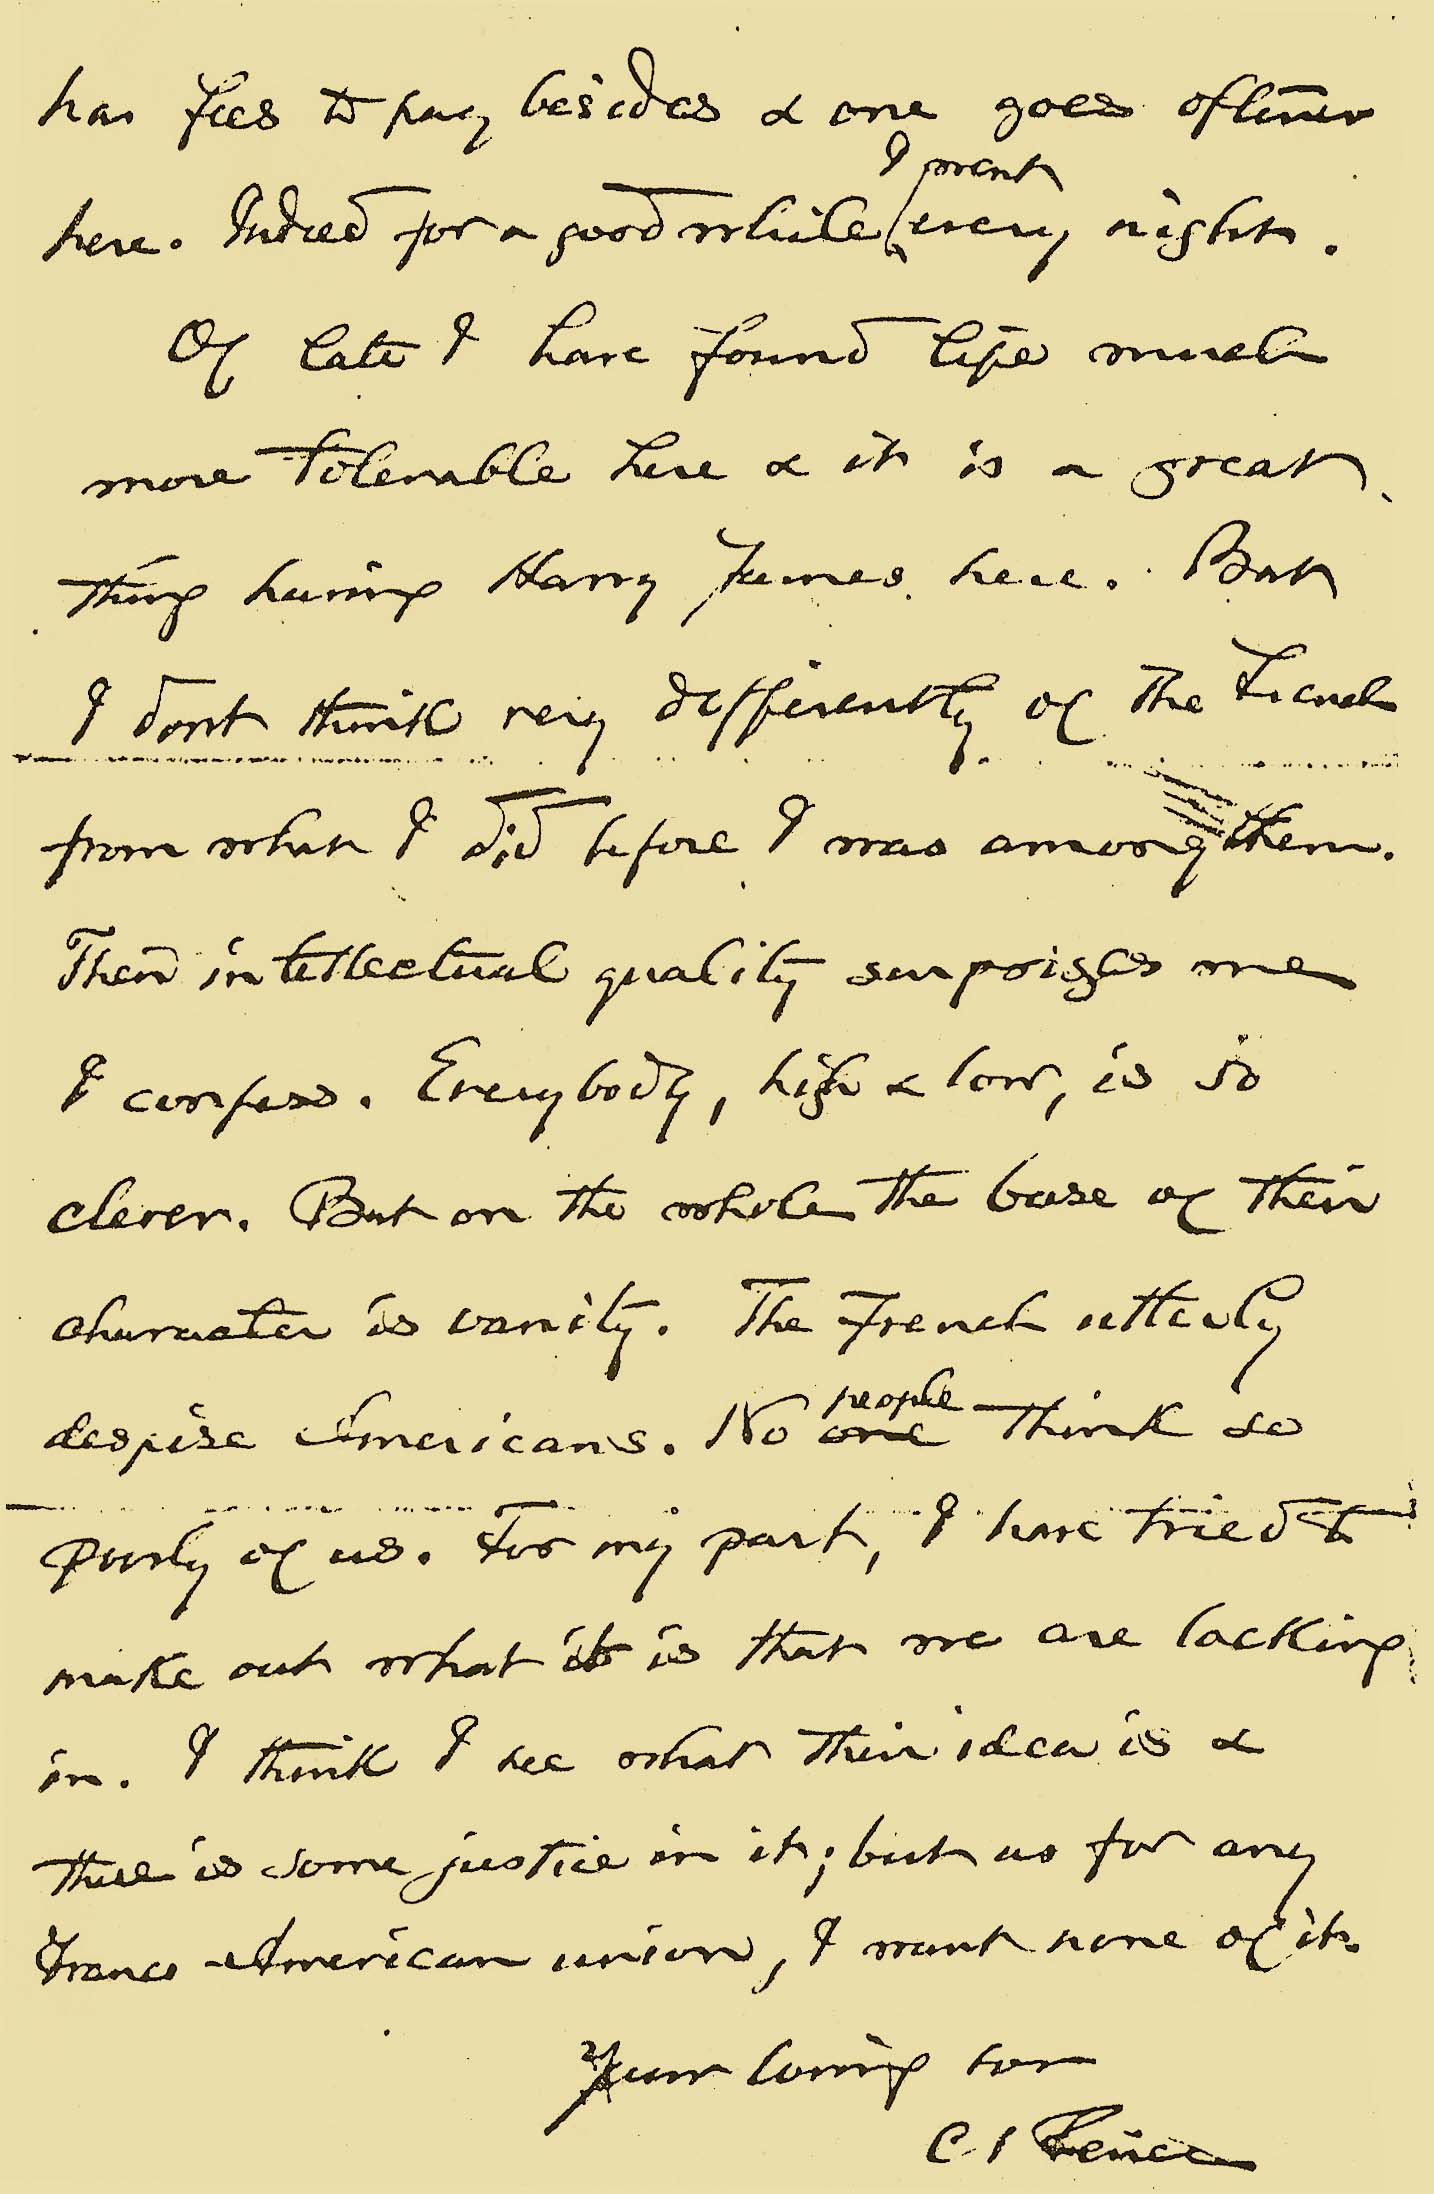 has fees to pay besides & one goes oftener
I went
here. Indeed for a good while every night.
Of late I have found life much
more tolerable here & it is a great
thing having Harry James here. But
I dont think very differently of the French
from what I did before I was among them.
Their intellectual quality surprises me
I confess. Everybody, high & low, is so
clever. But on the whole the base of their
character is vanity. The French utterly
people
despise Americans. No one think so
poorly of us. For my part, I have tried to
make out what it is that we are lacking
in. I think I see what their idea is &
there is some justice in it; but as for any
Franco-American union, I want none of it.
Your loving son
C. S. Peirce